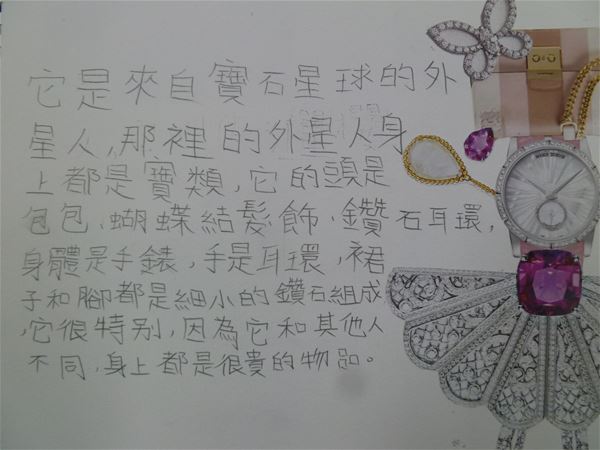 它是來自寶石星球的外
星人,那裡的外星人身
上都是寶類,它的頭是
包包、蝴蝶結髮飾、鑽石耳環,
身體是手錶,手是耳環,裙
子和腳都是細小的鑽石組成
,它很特別,因為它和其他人
不同,身上都是很貴的物品。
ROGER DUBUIS